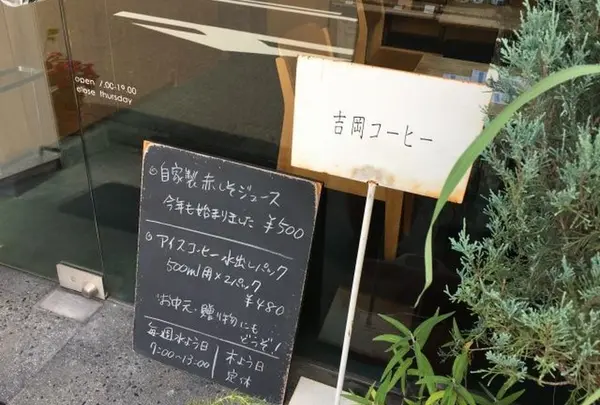 open 7.00-19.00
close thursday
吉岡コーヒー
◎自家製 赤しそジュース
今年も始まりました ¥500
◎アイスコーヒー 水出しパック
500ml用×2パック
¥480
お中元・贈り物にも
どうぞ!
毎週水よう日
7:00〜13:00
木よう日
定休